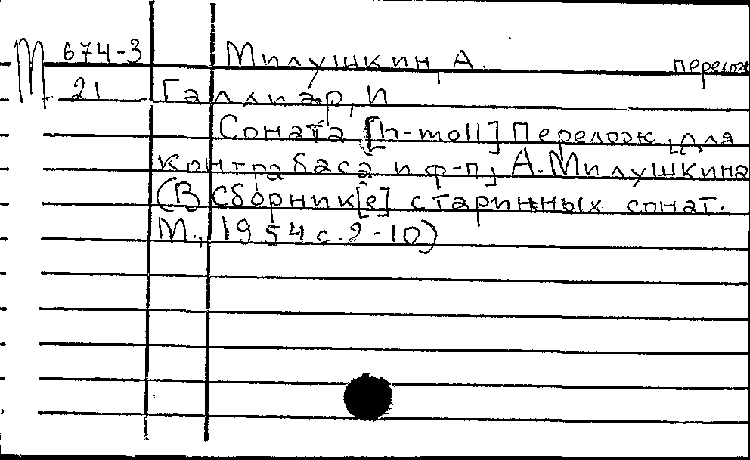 М 674-3 Милушкин, А. перелож
21 Галлиар, И
Соната [h-moll] Перелож. для
контрабаса и ф-п, А. Милушкина
(В Сборник[е] старинных сонат.
М., 1954 с. 2-10)